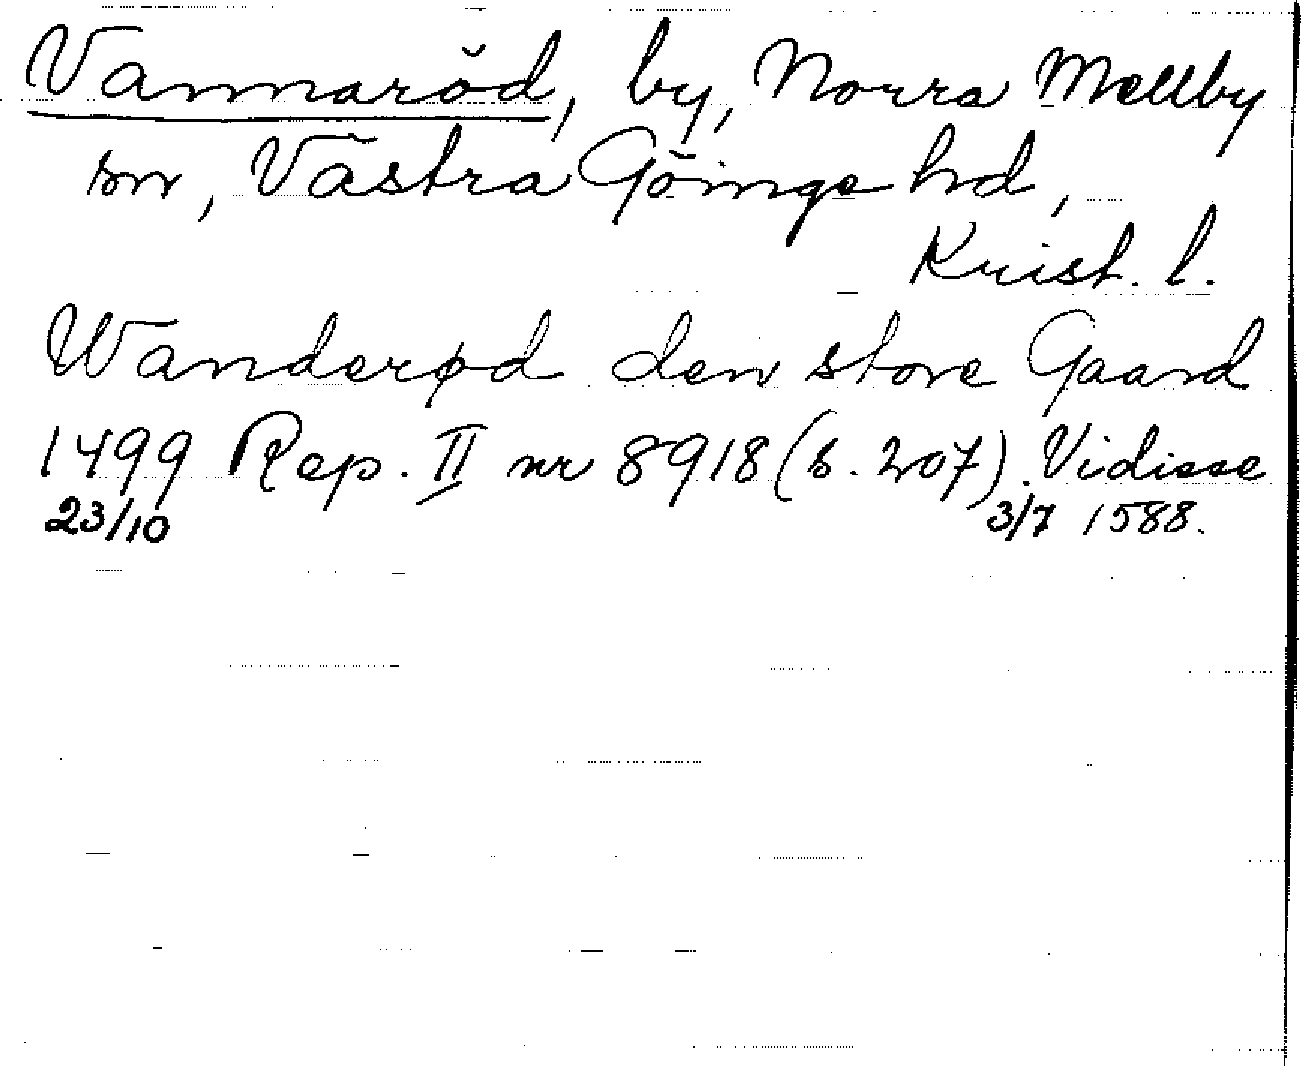 Vannaröd, by, Norra Mellby
sn, Västra Göinge hd,
Krist. l.
Wanderød den store Gaard
1499 Rep. II nr 8918 (s. 207). Vidisse
23/10 3/7 1588.